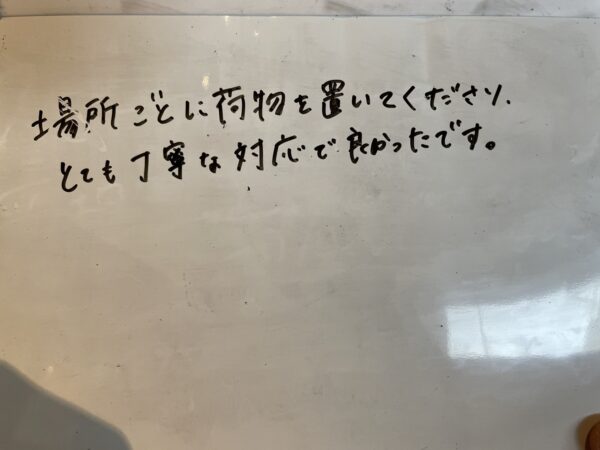 場所ごとに荷物を置いてくださり、
とても丁寧な対応で良かったです。